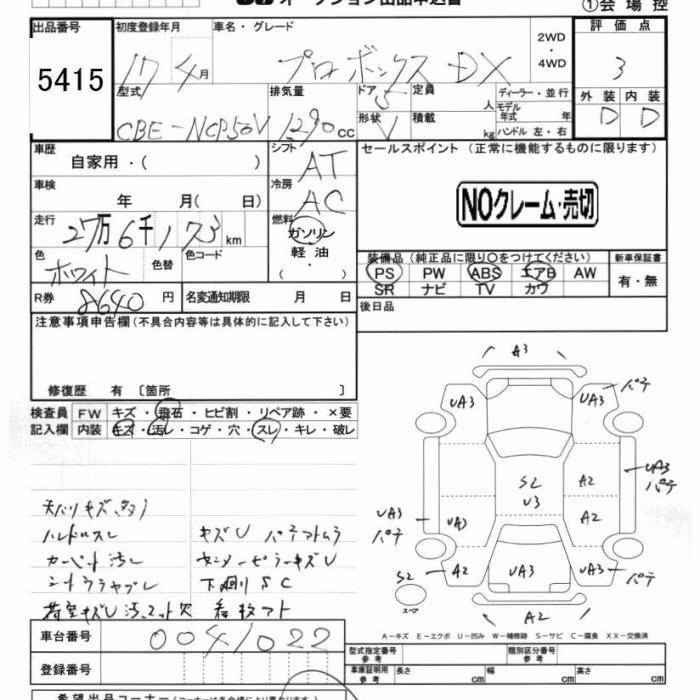 オークション出品申込書
①会場控
出品番号
5415
初度登録年月
17 4月
車名・グレード
プロボックス DX
2WD
・
4WD
評価点
3
型式
CBE-NCP50V
排気量
1290cc
ドア
5
定員
人
形状
V
積載
kg
ディーラー・並行
モデル年式 年
ハンドル 左・右
外装 内装
D D
車歴
自家用・( )
シフト
AT
車検
年 月( 日)
冷房
AC
走行
27万6千173km
燃料
ガソリン
軽油
色
ホワイト
色替
色コード
R券
8640円
名変通知期限 月 日
セールスポイント (正常に機能するものに限ります)
NOクレーム・売切
装備品(純正品に限り○をつけてください)
PS PW ABS エアB AW
SR ナビ TV カワ
新車保証書
有・無
後日品
注意事項申告欄(不具合内容等は具体的に記入して下さい)
修復歴 有 〔箇所 〕
検査員記入欄
FW キズ・飛石・ヒビ割・リペア跡・×要
内装 キズ・汚レ・コゲ・穴・スレ・キレ・破レ
天バリキズ、タラ
ハンドルスレ キズU パテアトムラ
カーペット汚レ センターピラーキズU
シートウラヤブレ 下廻りSC
荷室キズU 汚 マット欠 看板アト
A3
UA3 UA3 パテ
S2
U3
A2
UA3 パテ
UA3 パテ
UA3
A2
A2 UA3 UA3 パテ
S2
スペア
A2
A-キズ E-エクボ U-凹み W-補修跡 S-サビ C-腐食 XX-交換済
車台番号
0041022
登録番号
型式指定番号 参考
類別区分番号 参考
車庫証明用 参考 長さ cm 幅 cm 高さ cm
希望出品コーナー(コーナーは各会場により異なります)